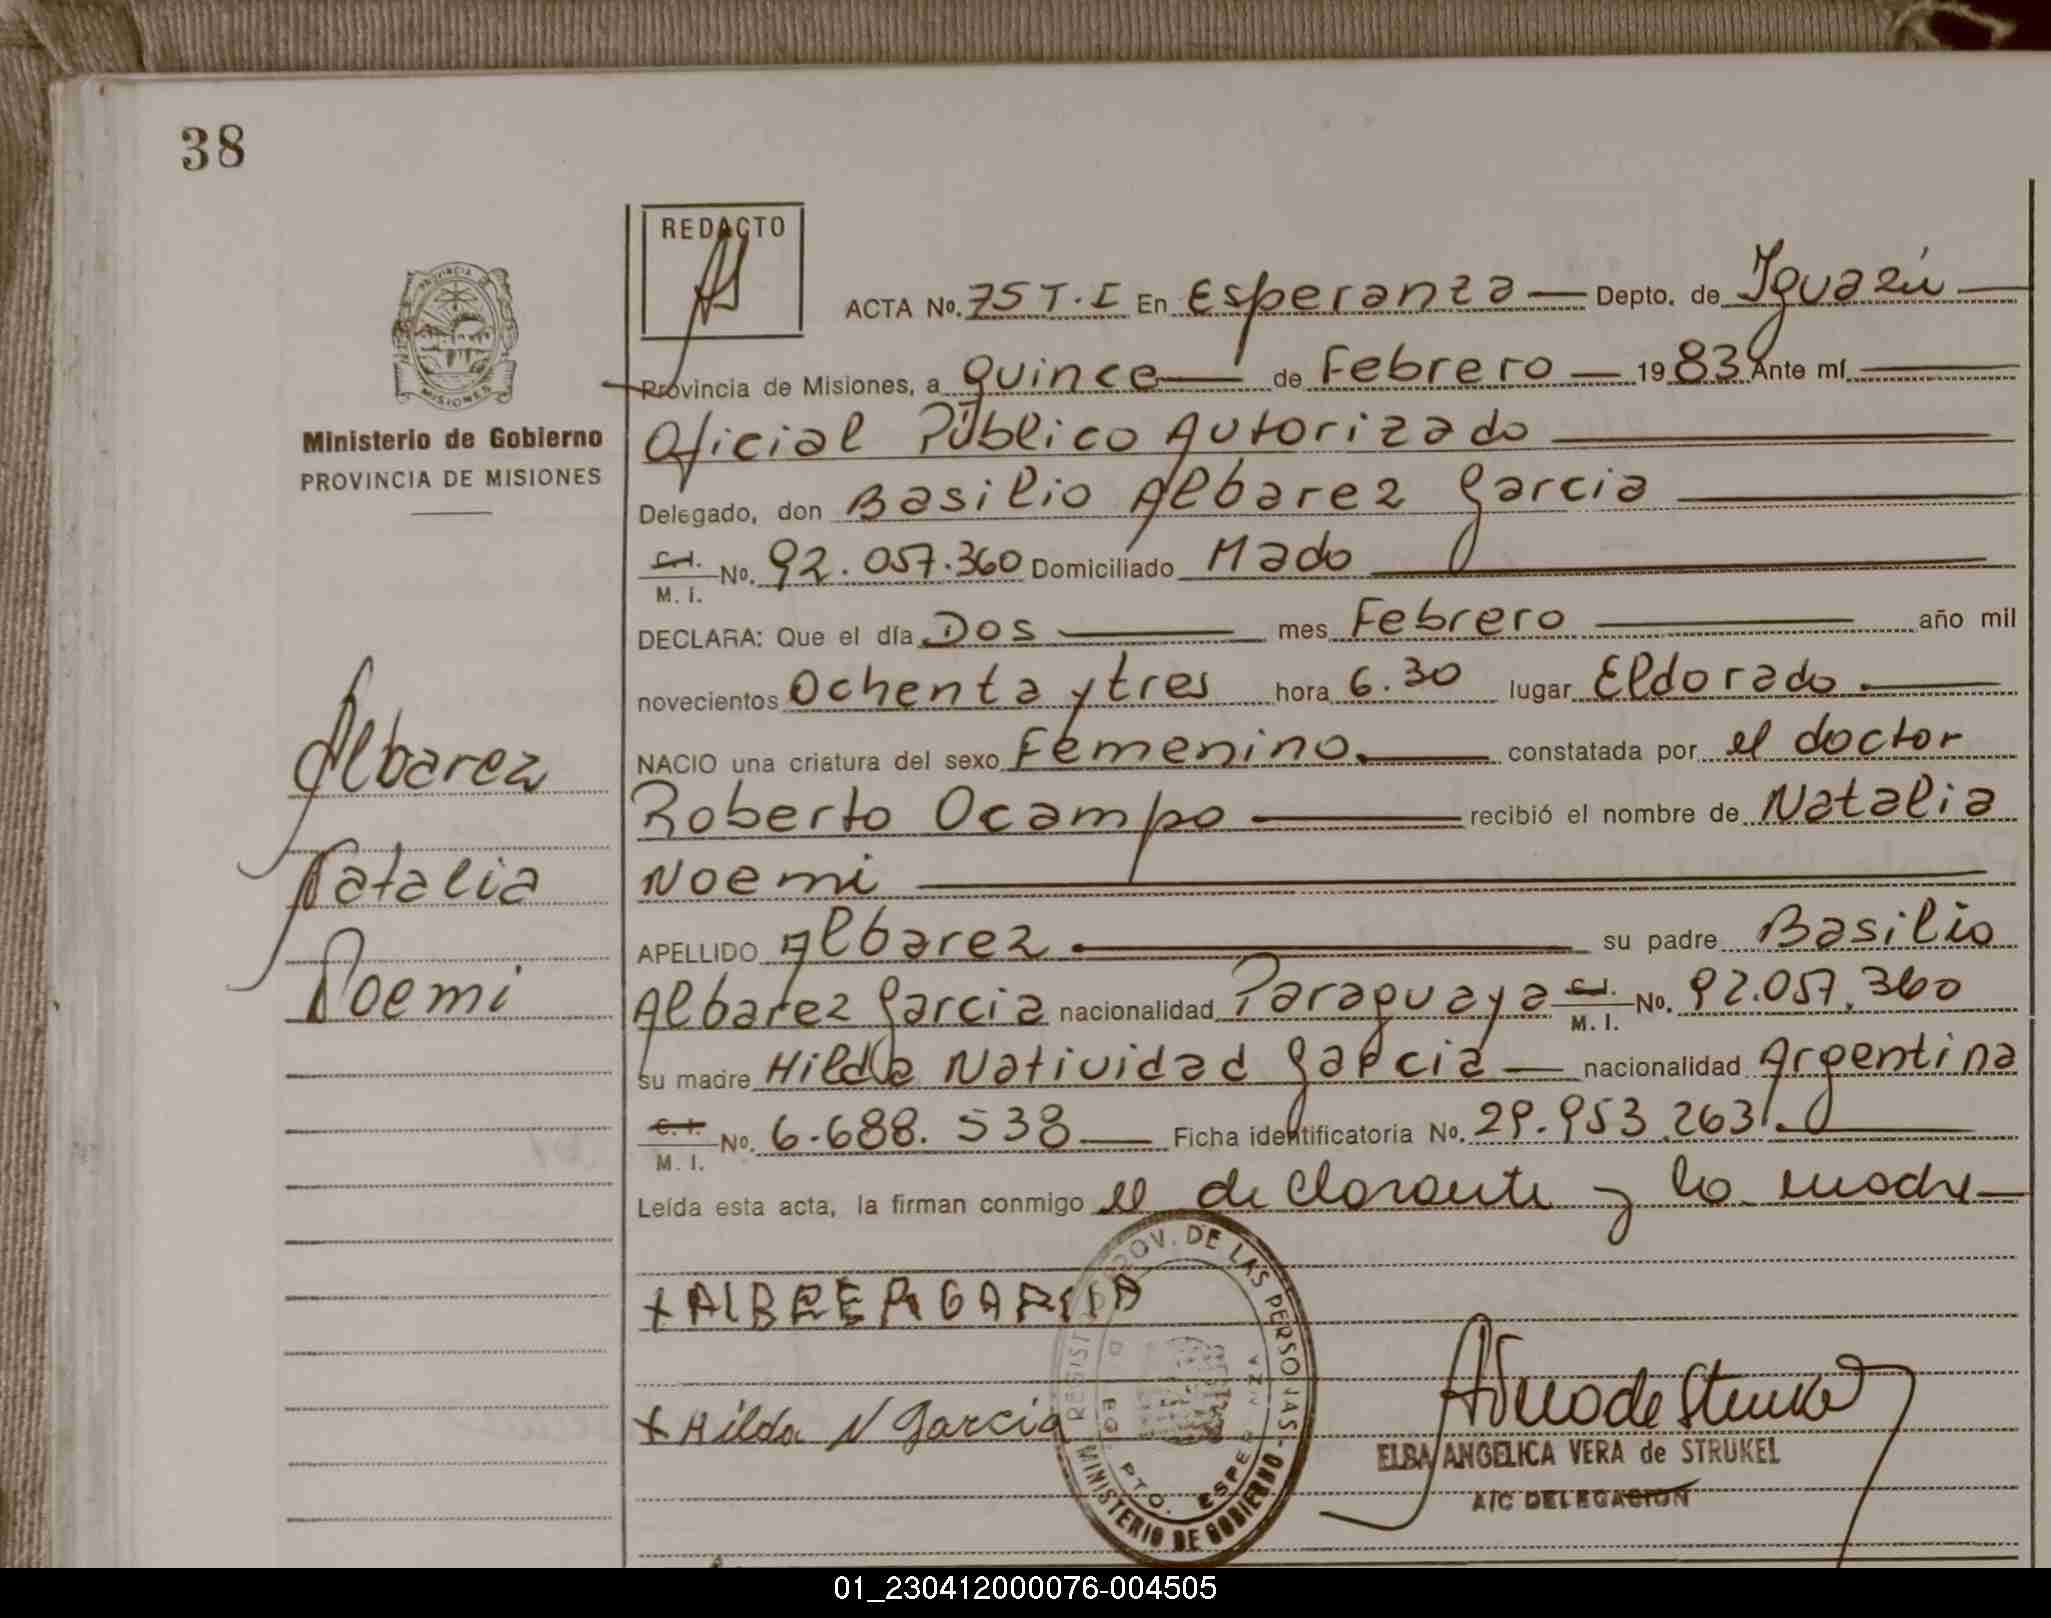 38
REDACTO
ACTA No. 75 T. I En Esperanza — Depto. de Iguazú —
Provincia de Misiones, a quince — de Febrero — 1983 Ante mí
Oficial Público Autorizado
Delegado, don Basilio Albarez Garcia
C.I. M. I. No. 92.057.360 Domiciliado Mado
DECLARA: Que el día Dos — mes Febrero — año mil
novecientos Ochenta y tres hora 6.30 lugar Eldorado.
NACIO una criatura del sexo Femenino. — constatada por el doctor
Roberto Ocampo — recibió el nombre de Natalia
Noemi
APELLIDO Albarez — su padre Basilio
Albarez Garcia nacionalidad Paraguaya C.I. M. I. No. 92.057.360
su madre Hilda Natividad Garcia — nacionalidad Argentina
C. I. M. I. No. 6.688.538 — Ficha identificatoria No. 29.953.263.
Leída esta acta, la firman conmigo el declarante y la madre —
PROVINCIA DE MISIONES
Ministerio de Gobierno
PROVINCIA DE MISIONES
Albarez
Natalia
Noemi
x Hilda N Garcia
PROV. DE LAS PERSONAS
MINISTERIO DE GOBIERNO
PTO. ESPERANZA
ELBA ANGELICA VERA de STRUKEL
A/C DELEGACION
01_230412000076-004505